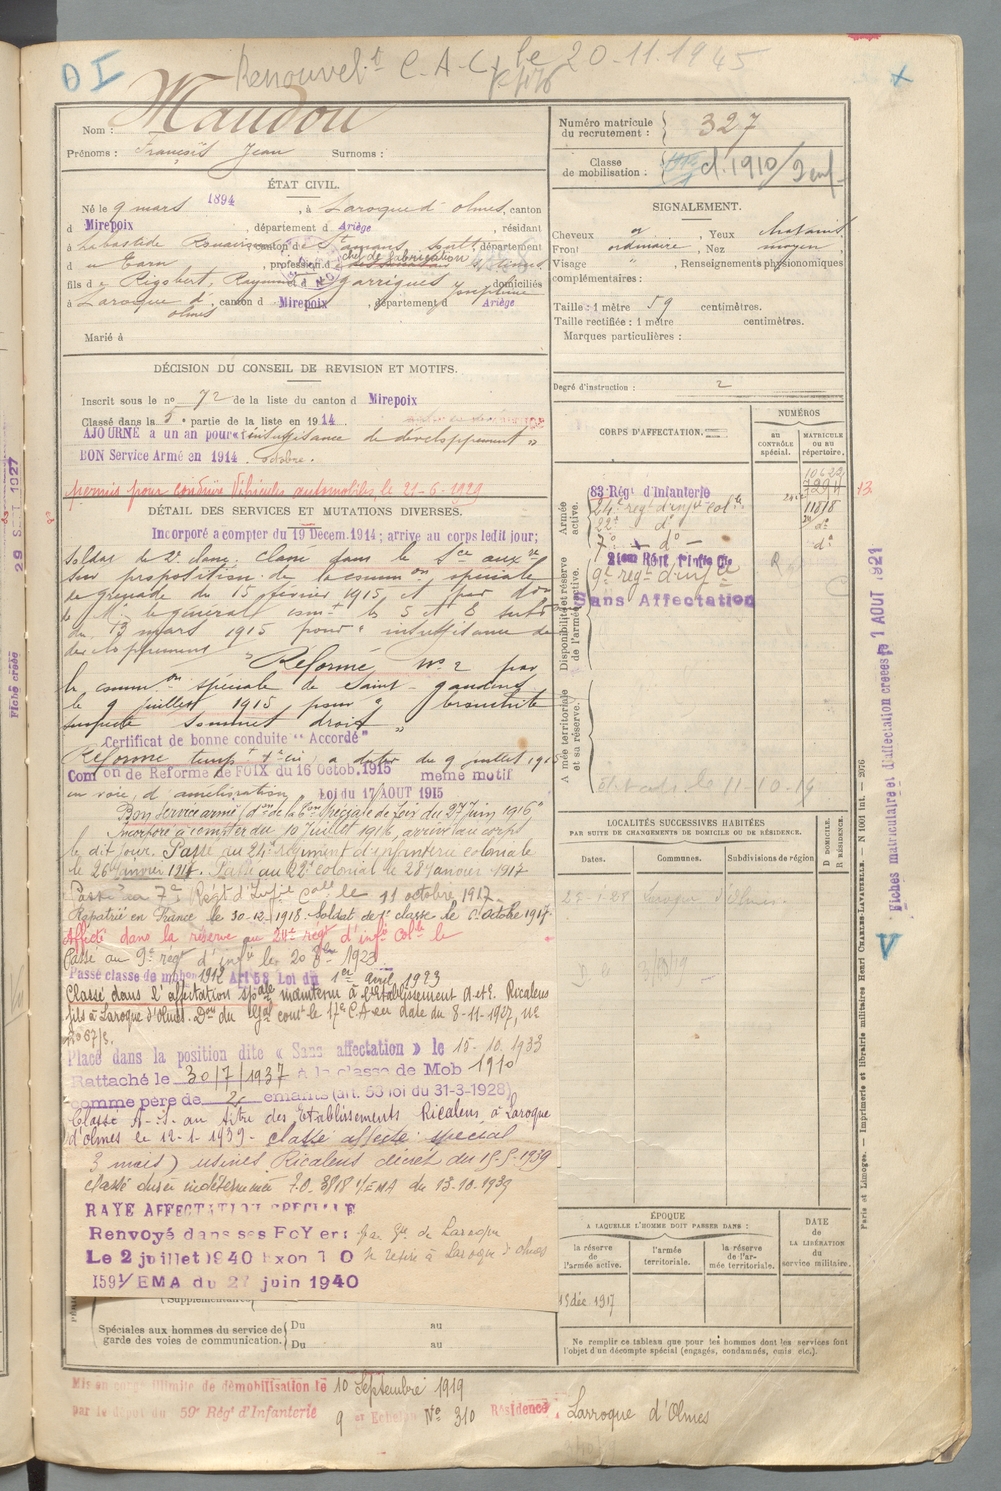 D I
Renouvel.t C.A.C. le 20.11.1945
Nom : Maudou
Prénoms : François Jean Surnoms :
Numéro matricule du recrutement : 327
Classe de mobilisation : d. 1910/2 enf
ÉTAT CIVIL.
Né le 9 mars 1894, à Laroque d'olmes, canton
d Mirepoix, département d Ariège, résidant
à Labastide Rouairoux canton de St amans Soult, département
d u Tarn, profession d chef de fabrication
fils d e Rigobert, Raymond et d garrigues Joséphine domiciliés
à Laroque d'olmes, canton d Mirepoix, département d Ariège
Marié à
SIGNALEMENT.
Cheveux Yeux chatains
Front ordinaire, Nez moyen
Visage " , Renseignements physionomiques
complémentaires :
Taille : 1 mètre 59 centimètres.
Taille rectifiée : 1 mètre centimètres.
Marques particulières :
Degré d'instruction : 2
DÉCISION DU CONSEIL DE REVISION ET MOTIFS.
Inscrit sous le no 72 de la liste du canton d Mirepoix
Classé dans la 5e partie de la liste en 1914
AJOURNE à un an pour « insuffisance de développement »
BON Service Armé en 1914 octobre.
permis pour conduire Véhicules automobiles le 21-6-1929
DÉTAIL DES SERVICES ET MUTATIONS DIVERSES.
Incorporé à compter du 19 Décem. 1914 ; arrivé au corps ledit jour ;
soldat de 2e classe, classé dans le Sce auxre
sur proposition de la common spéciale
de grenade du 15 février 1915, et par don
de Mr le général commt les 5 et 8 subdons
du 13 mars 1915 pour " insuffisance de
développement " Réformé No 2 par
la common spéciale de Saint-gaudens
le 9 juillet 1915 pour " bronchite
suspecte sommet droit "
Certificat de bonne conduite "Accordé"
Réformé tempt 1re cie à dater du 9 juillet 1915
Comon de Réforme de FOIX du 16 Octob. 1915 même motif
en voie d'amélioration Loi du 17 AOUT 1915
Bon service armé (don de la Con Spéciale de Foix du 27 Juin 1916"
Incorporé à compter du 10 Juillet 1916, arrivé au corps
le dit jour. Passé au 24e régiment d'infanterie coloniale
le 26 Janvier 1917. Passé au 22e colonial le 28 Janvier 1917
Passé au 7e Régt d'Infie colle le 11 octobre 1917.
Rapatrié en France le 30-12-1918. Soldat de 1e classe le 6 Octobre 1917
Affecté dans la réserve au 24e régt d'infie Colle le
Passé au 9e régt d'infie le 20 8bre 1923
Passé classe de mobon 1912 Art 58 Loi du 1er avril 1923
Classé dans l'affectation spale maintenu à l'établissement A. et E. Ricalens
fils à Laroque d'olmes. Don du Gal comt le 17e C.A en date du 8-11-1927, No
2067/s.
Placé dans la position dite « Sans affectation » le 15-10-1933
Rattaché le 30/7/1937 à la classe de Mob 1910
comme père de 2 enfants (art. 58 loi du 31-3-1928)
Classé A.S. au titre des Etablissements Ricalens à Laroque
d'olmes le 12-1-1939 - classé affecté spécial
3 mois) usines Ricalens décret du 15-5-1939
classé durée indéterminée I.O. 3818 1/EMA du 13-10-1939
RAYE AFFECTATION SPECIALE
Renvoyé dans ses FOYers Laroque
Le 2 juillet 1940 Exon I O se retire à Laroque d'olmes
1591/EMA du 27 juin 1940
(Supplémentaires)
Spéciales aux hommes du service de garde des voies de communication. Du au
Du au
CORPS D'AFFECTATION.
NUMÉROS
au CONTRÔLE spécial.
MATRICULE OU AU répertoire.
Armée active.
83 Régt d'Infanterie 10622
7294
24e régt d'infie colle 11818
22e do do
7e do do
Disponibilité et réserve de l'armée active.
21ème Régt d'Infie Cle
9e régt d'infie R
Sans Affectation
Armée territoriale et sa réserve.
11-10-19
LOCALITÉS SUCCESSIVES HABITÉES
PAR SUITE DE CHANGEMENTS DE DOMICILE OU DE RÉSIDENCE.
Dates. Communes. Subdivisions de région
D DOMICILE. R RÉSIDENCE.
22-1-28 Laroque d'Olmes.
ÉPOQUE
A LAQUELLE L'HOMME DOIT PASSER DANS :
la réserve de l'armée active.
l'armée territoriale.
la réserve de l'armée territoriale.
DATE de LA LIBÉRATION du service militaire.
15 déc. 1917
Ne remplir ce tableau que pour les hommes dont les services font
l'objet d'un décompte spécial (engagés, condamnés, omis etc.).
Mis en congé illimité de démobilisation le 10 Septembre 1919
par le dépôt du 59e Régt d'Infanterie 9 er Echelon No 310 Résidence, Larroque d'Olmes
Fiches matriculaire et d'affectation créées le 1 AOUT 1921
Paris et Limoges. — Imprimerie et librairie militaires Henri CHARLES-LAVAUZELLE. — N 1001 int. — 2076
V
Fiche créée 29 SEPT 1927